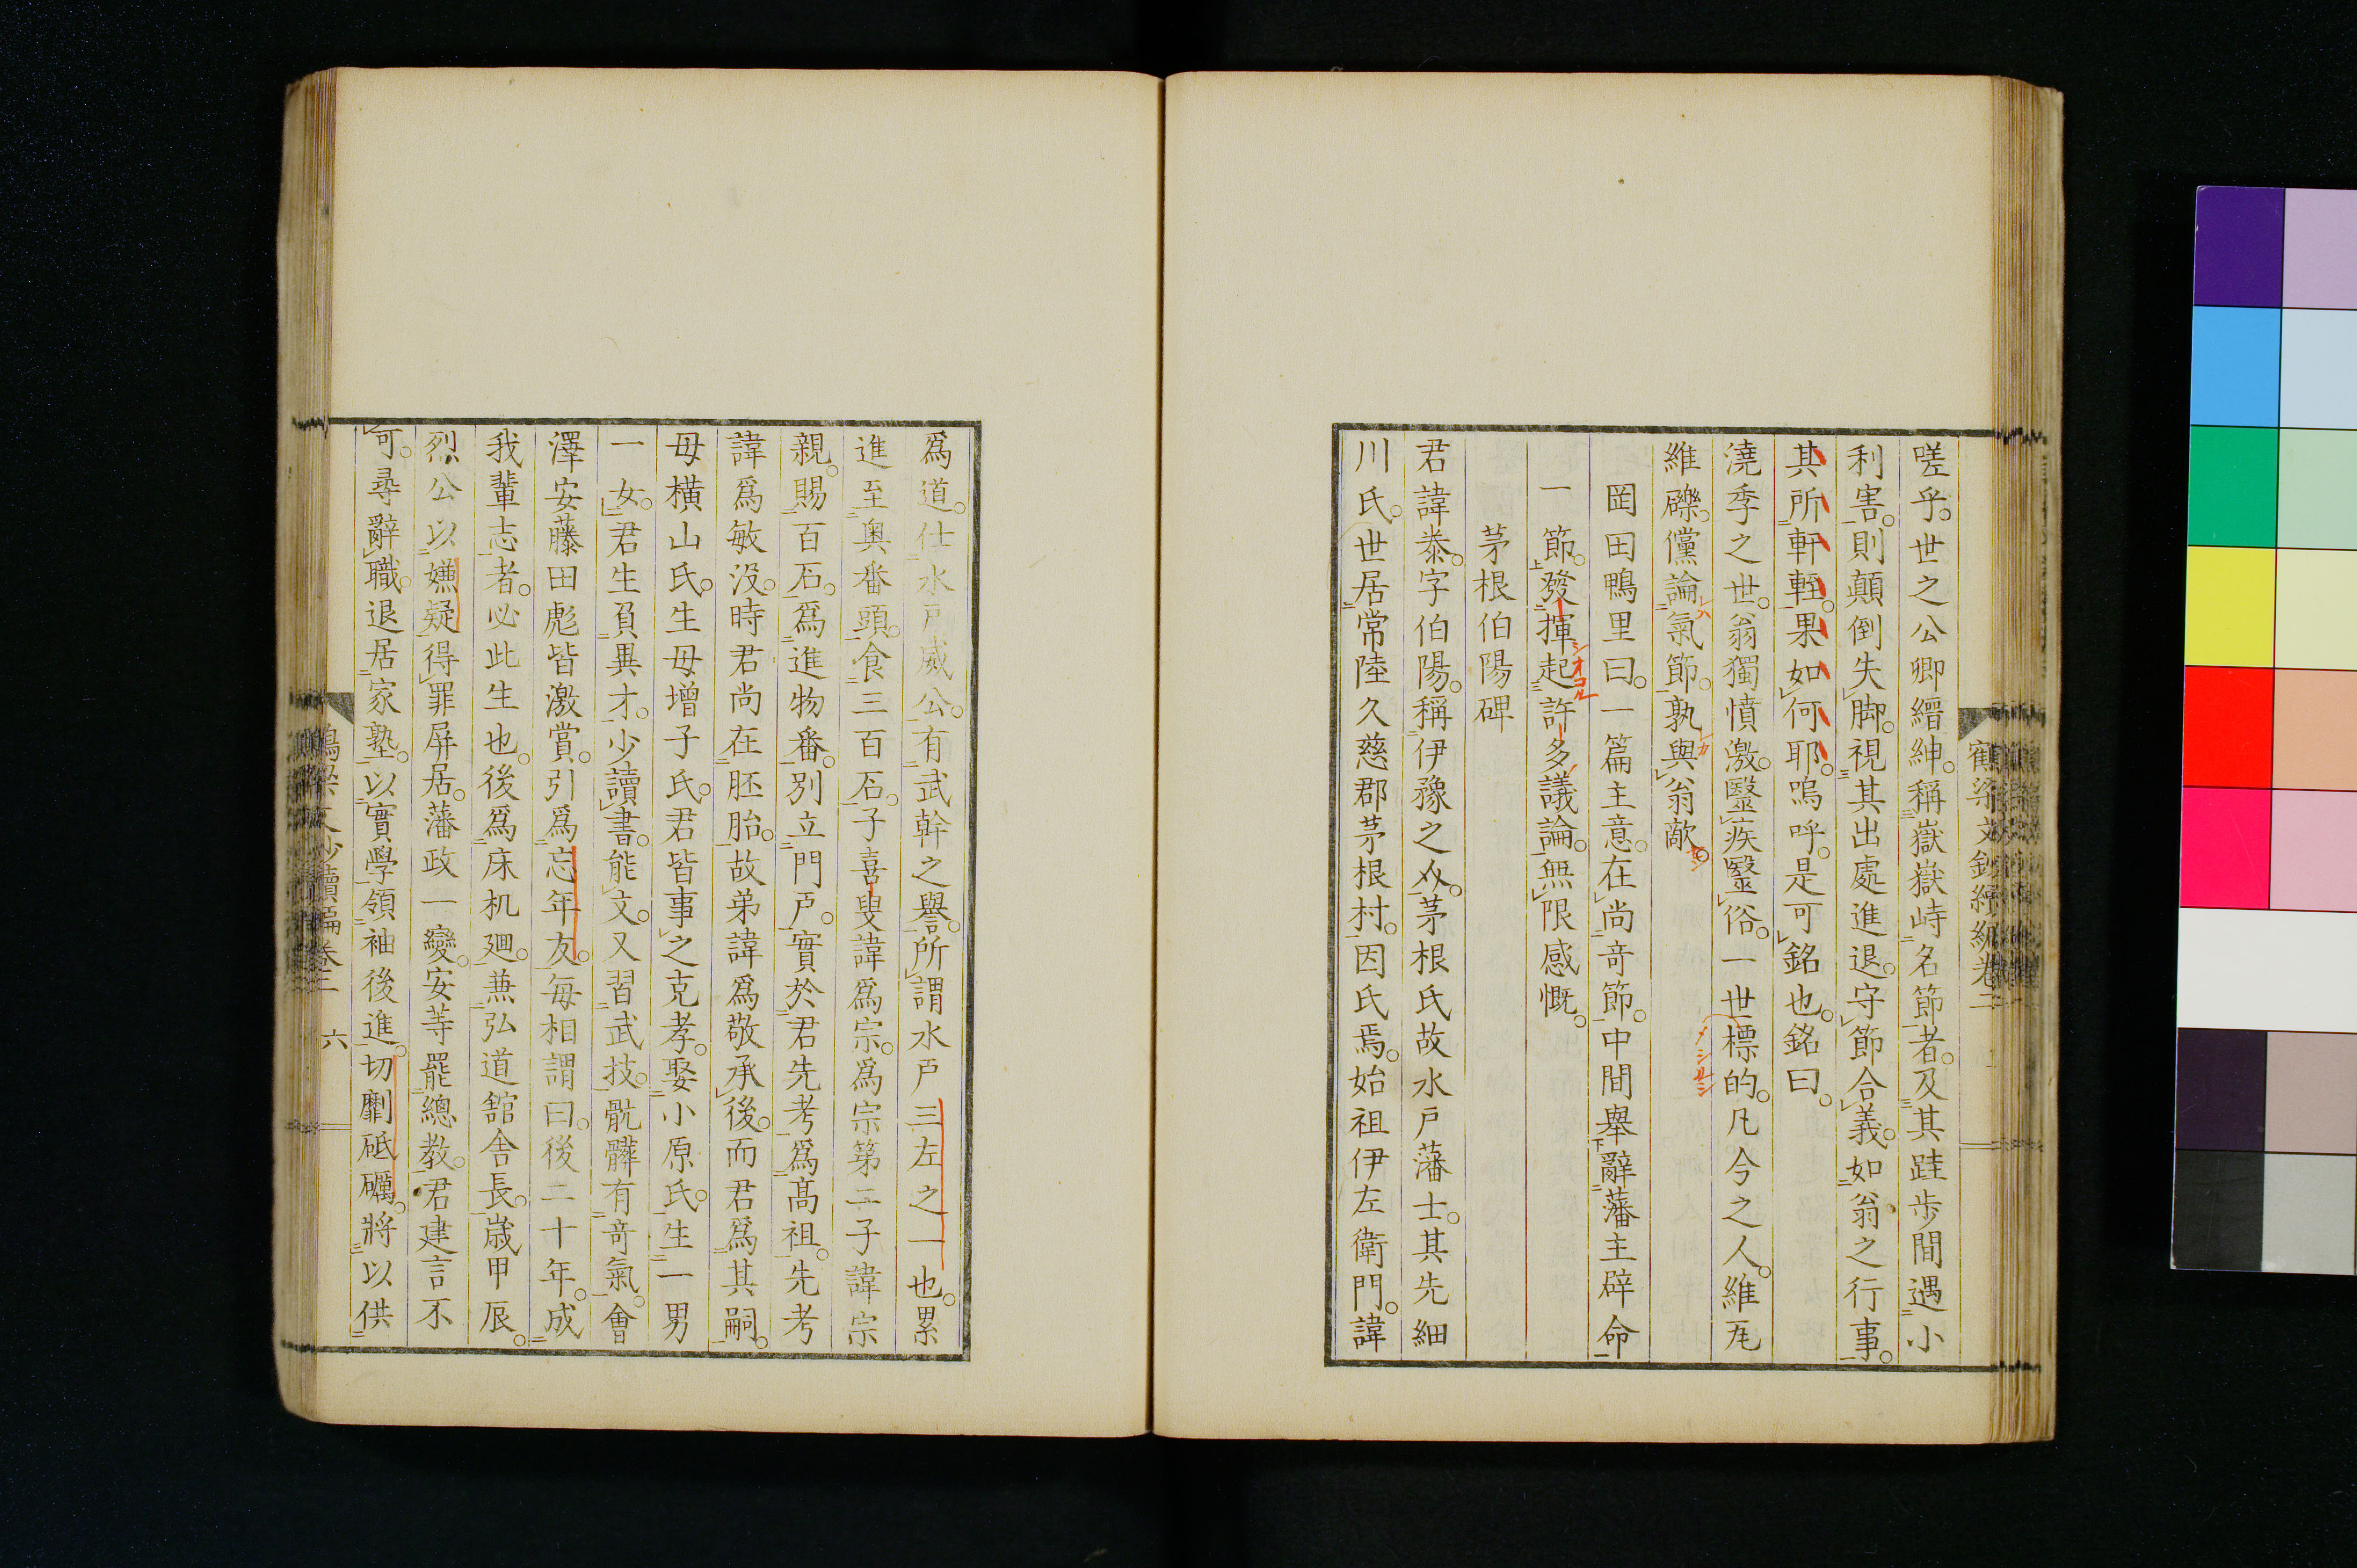 嗟乎。世之公卿縉紳。稱嶽嶽峙名節者。及其跬歩間遇小
利害。則顛倒失脚。視其出處進退。守節合義。如翁之行事。
其所軒輊。果如何耶。嗚呼。是可銘也。銘曰。
澆季之世。翁獨憤激。醫疾醫俗。一世標的。凡今之人。維瓦
維礫。儻論氣節。孰與翁敵。
岡田鴨里曰。一篇主意。在尚奇節。中間舉辭藩主辟命
一節。發揮起許多議論。無限感慨。
茅根伯陽碑
君諱泰。字伯陽。稱伊豫之介。茅根氏故水戸藩士。其先細
川氏。世居常陸久慈郡茅根村。因氏焉。始祖伊左衛門。諱
鶴梁文鈔續編卷二
爲道。仕水戸威公。有武幹之譽。所謂水戸三左之一也。累
進至奥番頭。食三百石。子喜叟諱爲宗。爲宗第二子諱宗
親。賜百石。爲進物番。別立門戸。實於君先考爲髙祖。先考
諱爲敏没。時君尚在胚胎。故弟諱爲敬承後。而君爲其嗣。
母横山氏。生母增子氏。君皆事之克孝。娶小原氏。生一男
一女。君生負異才。少讀書。能文。又習武技。骯髒有奇氣。會
澤安藤田彪皆激賞。引爲忘年友。毎相謂曰。後二十年。成
我輩志者。必此生也。後爲床机廻。兼弘道舘舎長。歳甲辰。
烈公以嫌疑得罪屏居。藩政一變。安等罷總教。君建言不
可。尋辭職。退居家塾。以實學領袖後進。切劘砥礪。將以供
六